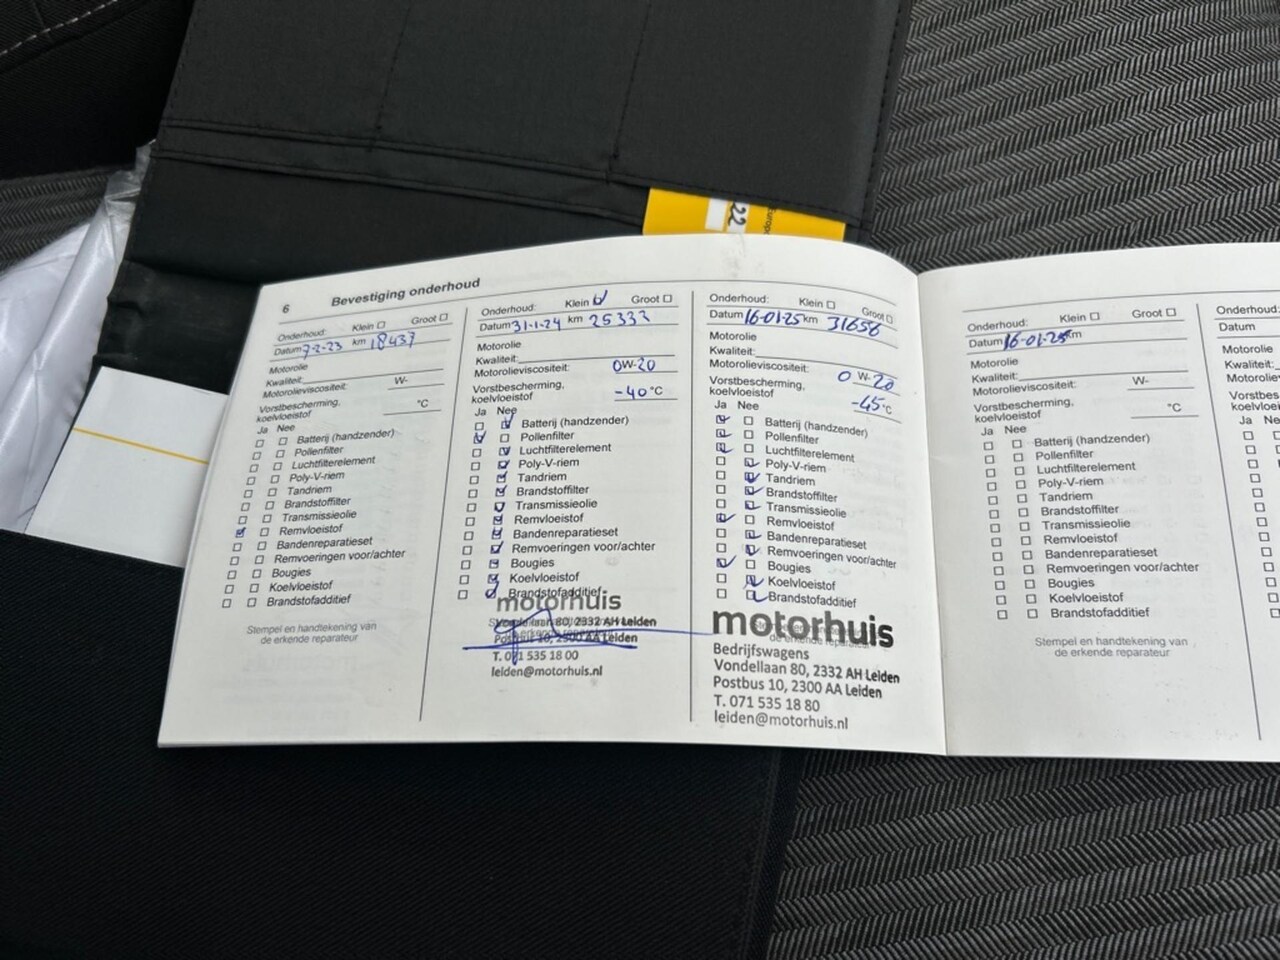 22
Europ
6 Bevestiging onderhoud
Onderhoud: Klein Groot
Datum 7-2-23 km 18437
Motorolie
Kwaliteit:
Motorolieviscositeit: W-
Vorstbescherming,
koelvloeistof °C
Ja Nee
Batterij (handzender)
Pollenfilter
Luchtfilterelement
Poly-V-riem
Tandriem
Brandstoffilter
Transmissieolie
Remvloeistof
Bandenreparatieset
Remvoeringen voor/achter
Bougies
Koelvloeistof
Brandstofadditief
Stempel en handtekening van
de erkende reparateur
Onderhoud: Klein Groot
Datum 31-1-24 km 25333
Motorolie
Kwaliteit:
Motorolieviscositeit: 0W-20
Vorstbescherming,
koelvloeistof -40°C
Ja Nee
Batterij (handzender)
Pollenfilter
Luchtfilterelement
Poly-V-riem
Tandriem
Brandstoffilter
Transmissieolie
Remvloeistof
Bandenreparatieset
Remvoeringen voor/achter
Bougies
Koelvloeistof
Brandstofadditief
motorhuis
Vondellaan 80, 2332 AH Leiden
Postbus 10, 2300 AA Leiden
T. 071 535 18 00
leiden@motorhuis.nl
Onderhoud: Klein Groot
Datum 16-01-25 km 31656
Motorolie
Kwaliteit:
Motorolieviscositeit: 0 W-20
Vorstbescherming,
koelvloeistof -45°C
Ja Nee
Batterij (handzender)
Pollenfilter
Luchtfilterelement
Poly-V-riem
Tandriem
Brandstoffilter
Transmissieolie
Remvloeistof
Bandenreparatieset
Remvoeringen voor/achter
Bougies
Koelvloeistof
Brandstofadditief
motorhuis
de erkende reparateur
Bedrijfswagens
Vondellaan 80, 2332 AH Leiden
Postbus 10, 2300 AA Leiden
T. 071 535 18 80
leiden@motorhuis.nl
Onderhoud: Klein Groot
Datum 16-01-25 km
Motorolie
Kwaliteit:
Motorolieviscositeit: W-
Vorstbescherming,
koelvloeistof °C
Ja Nee
Batterij (handzender)
Pollenfilter
Luchtfilterelement
Poly-V-riem
Tandriem
Brandstoffilter
Transmissieolie
Remvloeistof
Bandenreparatieset
Remvoeringen voor/achter
Bougies
Koelvloeistof
Brandstofadditief
Stempel en handtekening van
de erkende reparateur
Onderhoud:
Datum
Motorolie
Kwaliteit:
Motorolievis
Vorstbes
koelvloe
Ja Ne